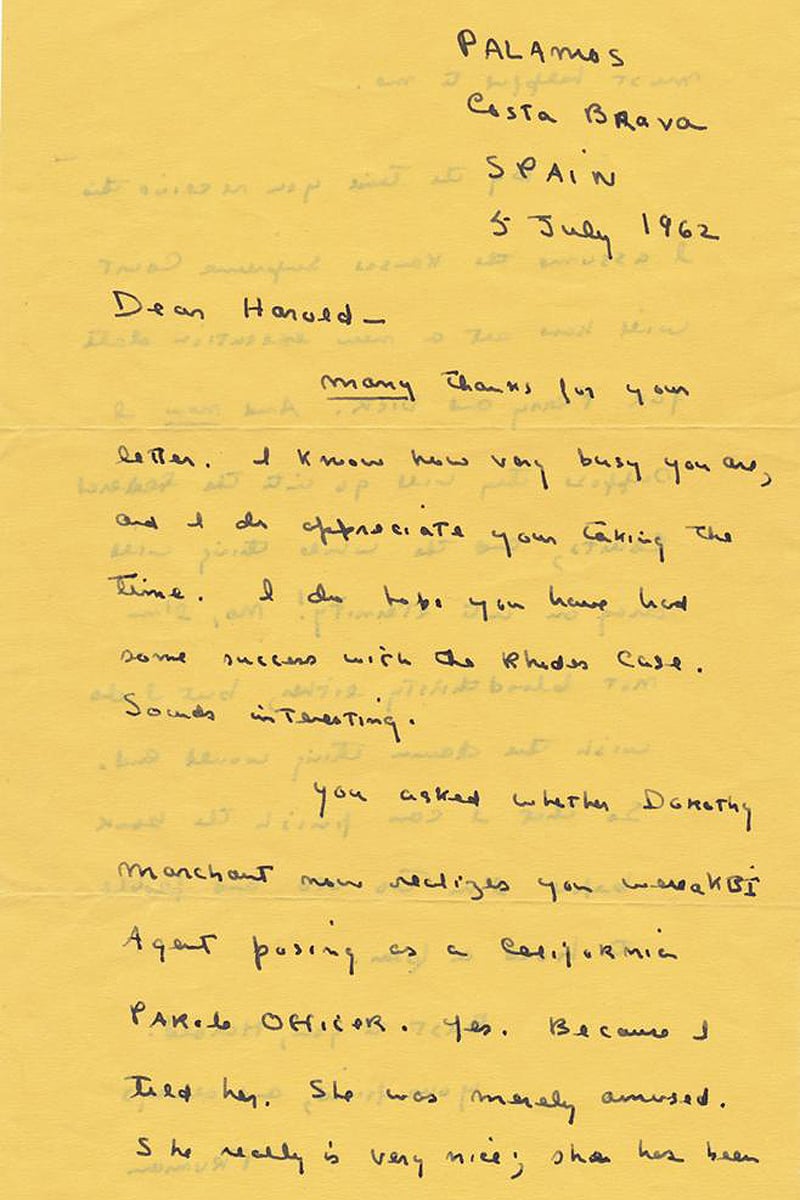 PALAMOS
Costa BRava
SPAIN
5 July 1962
Dear Harold—
many thanks for your
letter. I know how very busy you are,
and I do appreciate your taking the
time. I do hope you have had
some success with the Rhodes Case.
Sounds interesting.
you asked whether Dorothy
Marchant now realizes you were a KBI
Agent posing as a California
PARole OFFiceR. Yes. Because I
told her. She was merely amused.
She really is very nice; she has been